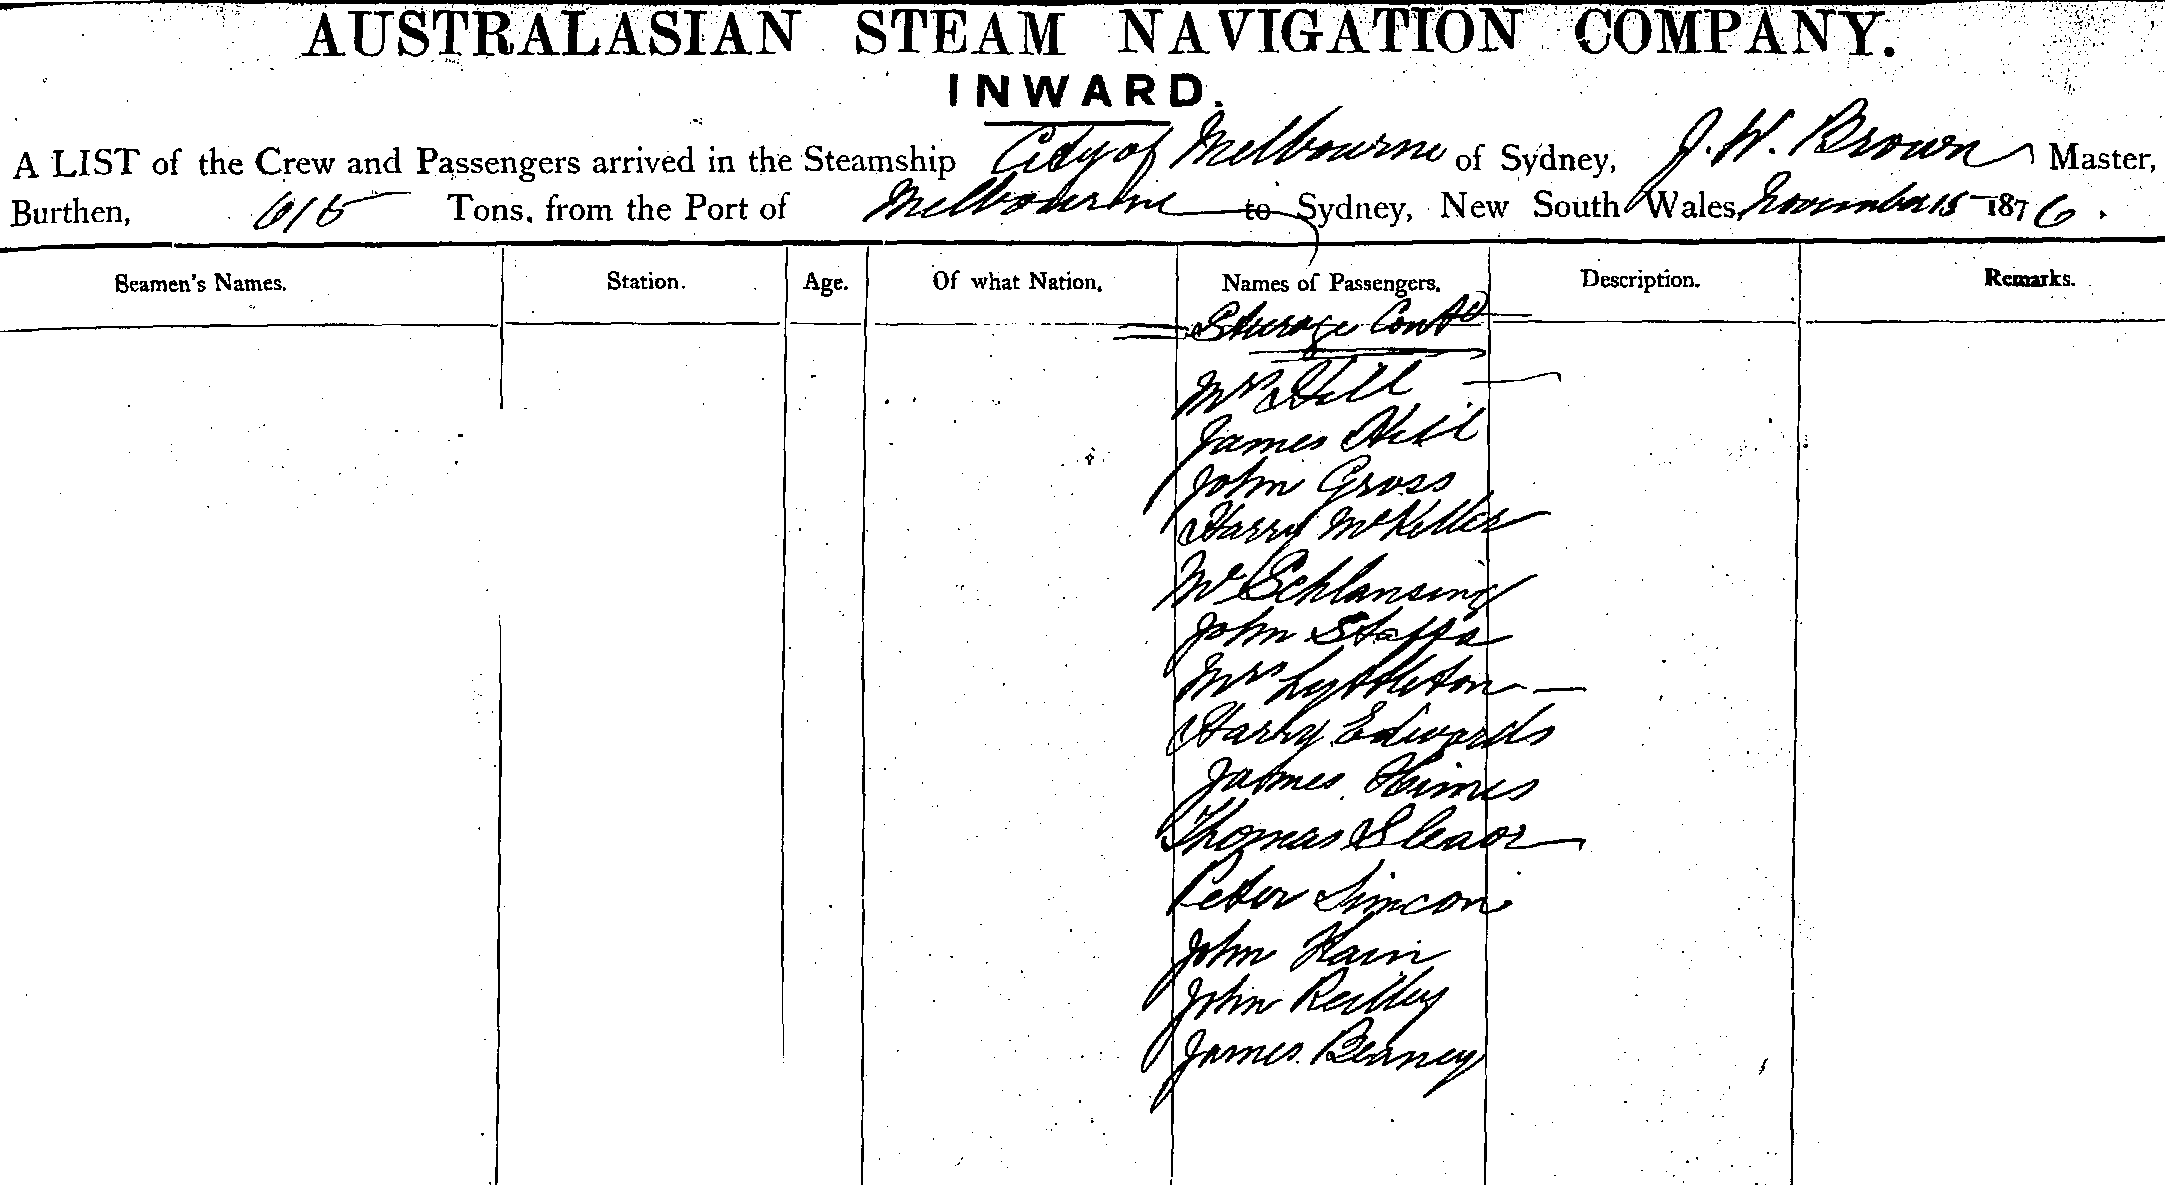 AUSTRALASIAN STEAM NAVIGATION COMPANY.
INWARD.
A LIST of the Crew and Passengers arrived in the Steamship City of Melbourne of Sydney, J. W. Brown Master,
Burthen, 615 Tons, from the Port of Melbourne to Sydney, New South Wales, November 15 1876.
Seamen's Names. Station. Age. Of what Nation. Names of Passengers. Description. Remarks.
Steerage Contd
Mrs Hill
James Hill
John Gross
Harry McKeller
Mr Schlansing
John Staffa
Mrs Lyttleton
Harry Edwards
James Himes
Thomas Sleator
Peter Simcon
John Kain
John Reilley
James Beaney